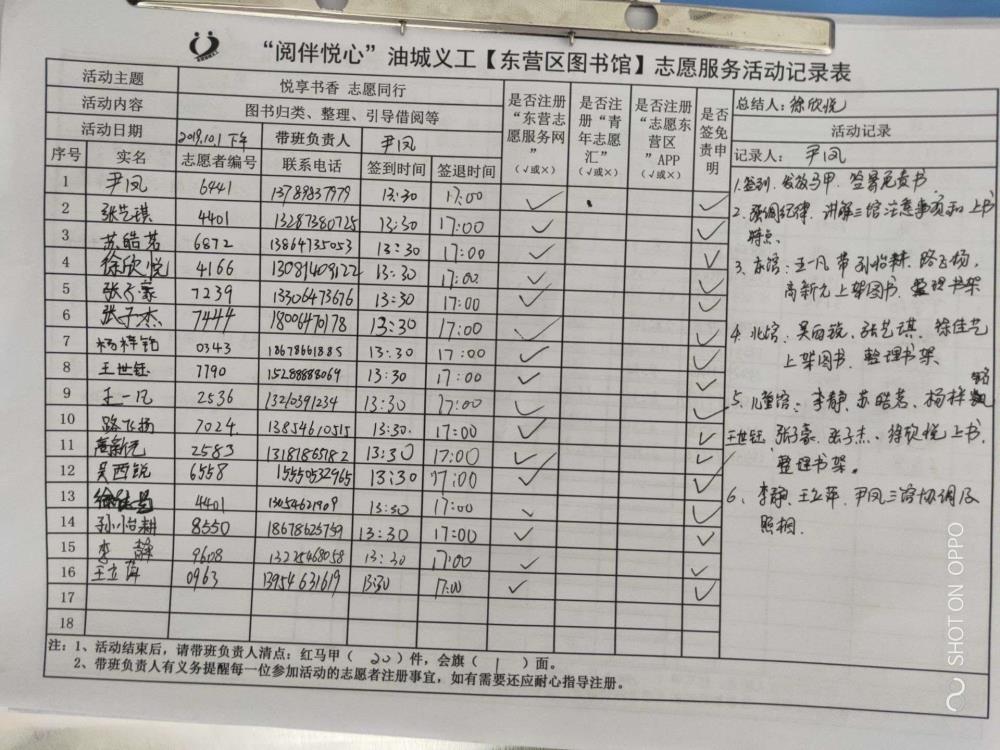 “阅伴悦心”油城义工【东营区图书馆】志愿服务活动记录表
活动主题 悦享书香 志愿同行
活动内容 图书归类、整理、引导借阅等
活动日期 2019.10.1 下午 带班负责人 尹凤
序号 实名 志愿者编号 联系电话 签到时间 签退时间 是否注册“东营志愿服务网”(√或×) 是否注册“青年志愿汇”(√或×) 是否注册“志愿东营区”APP(√或×) 是否签免责申明
总结人：徐欣悦
活动记录
记录人：尹凤
1 尹凤 6441 13789837979 13:30 17:00 √ √
2 张艺琪 4401 13287380725 13:30 17:00 √ √
3 苏皓茗 6872 13864735053 13:30 17:00 √ √
4 徐欣悦 4166 13081409122 13:30 17:00 √ √
5 张子豪 7239 13306473676 13:30 17:00 √ √
6 张子杰 7444 18006470178 13:30 17:00 √ √
7 杨梓铭 0343 18678661885 13:30 17:00 √ √
8 王世钰 7790 15288888069 13:30 17:00 √ √
9 王一凡 2536 13210391234 13:30 17:00 √ √
10 路飞扬 7024 13854610515 13:30 17:00 √ √
11 高新元 2583 13181865182 13:30 17:00 √ √
12 吴西锐 6558 15550532965 13:30 17:00 √ √
13 4401 13054631909 13:30 17:00 √ √
14 孙怡耕 8550 18678625759 13:30 17:00 √ √
15 李静 9608 13225468058 13:30 17:00 √ √
16 王立萍 0963 13954631619 13:30 17:00 √ √
17
18
1.签到、发放马甲、签署免责书
2、强调纪律、讲解三馆注意事项和上书
特点。
3、东馆：王一凡带孙怡耕、路飞扬，
高新元上架图书、整理书架
4、北馆：吴西锐、张艺琪、徐佳艺
上架图书、整理书架
5、儿童馆：李静、苏皓茗、杨梓铭
王世钰、张子豪、张子杰、徐欣悦上书，
整理书架。
6、李静、王立萍、尹凤三馆协调及
照相.
注：1、活动结束后，请带班负责人清点：红马甲（20）件，会旗（1）面。
2、带班负责人有义务提醒每一位参加活动的志愿者注册事宜，如有需要还应耐心指导注册。
SHOT ON OPPO